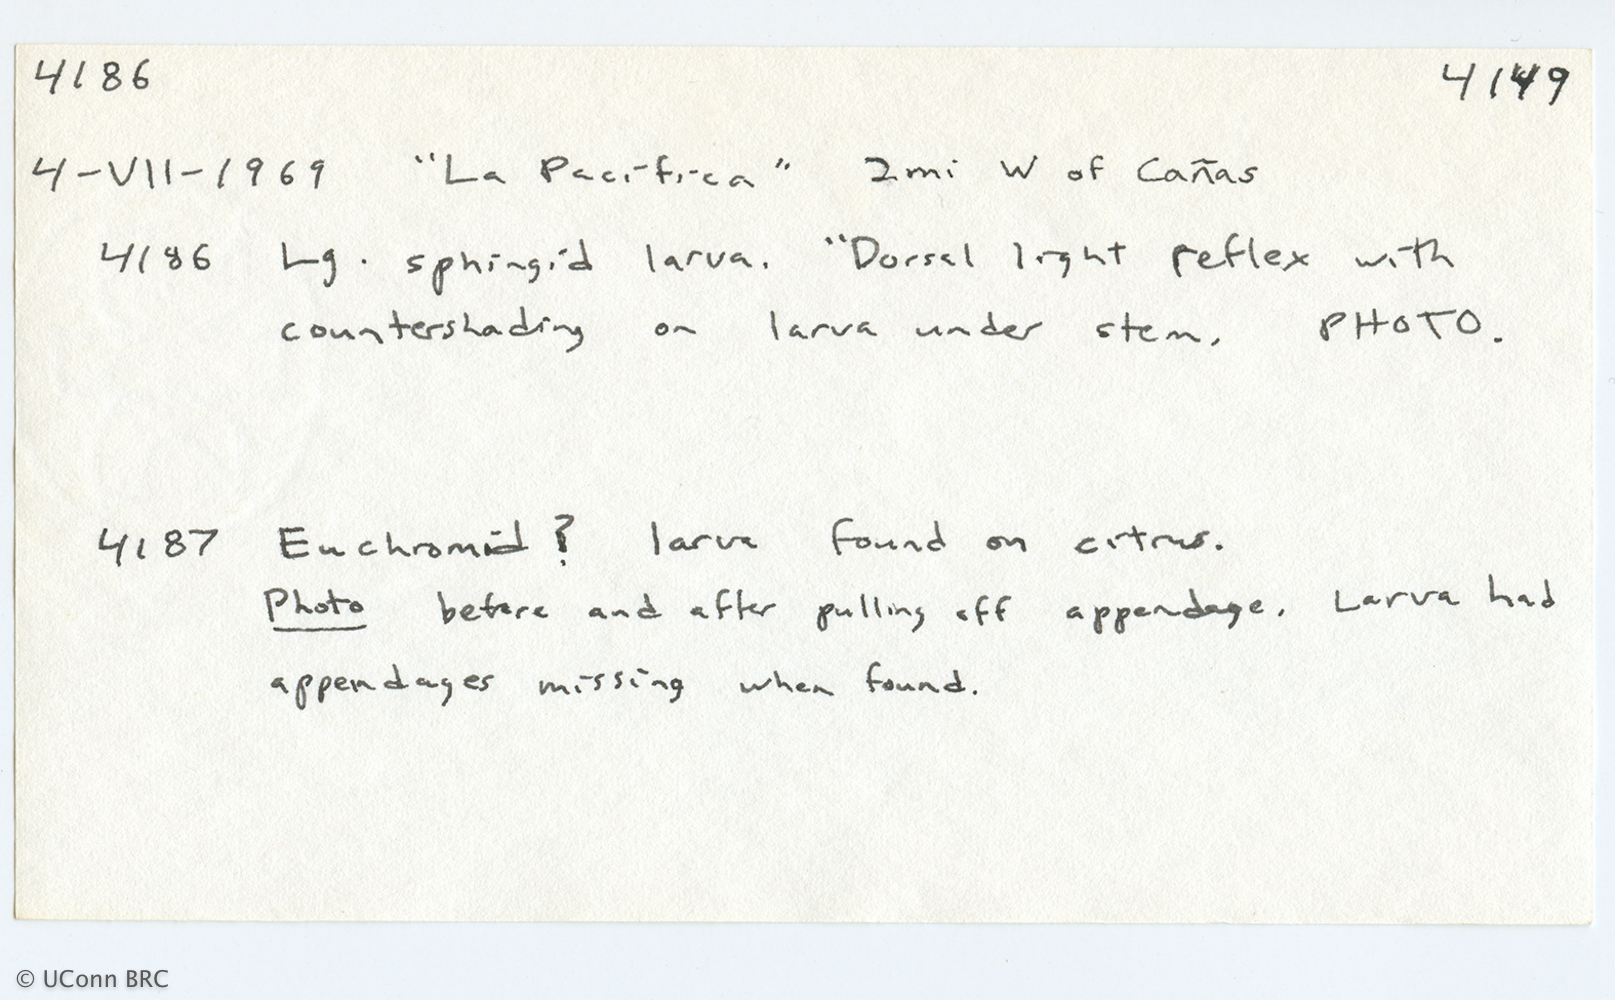 4186 4149
4-VII-1969 "La Pacifica" 2mi W of Cañas
4186 Lg. sphingid larva. "Dorsal light reflex with
countershading on larva under stem. PHOTO.
4187 Euchromid? larva found on citrus.
Photo before and after pulling off appendage. Larva had
appendages missing when found.
© UConn BRC